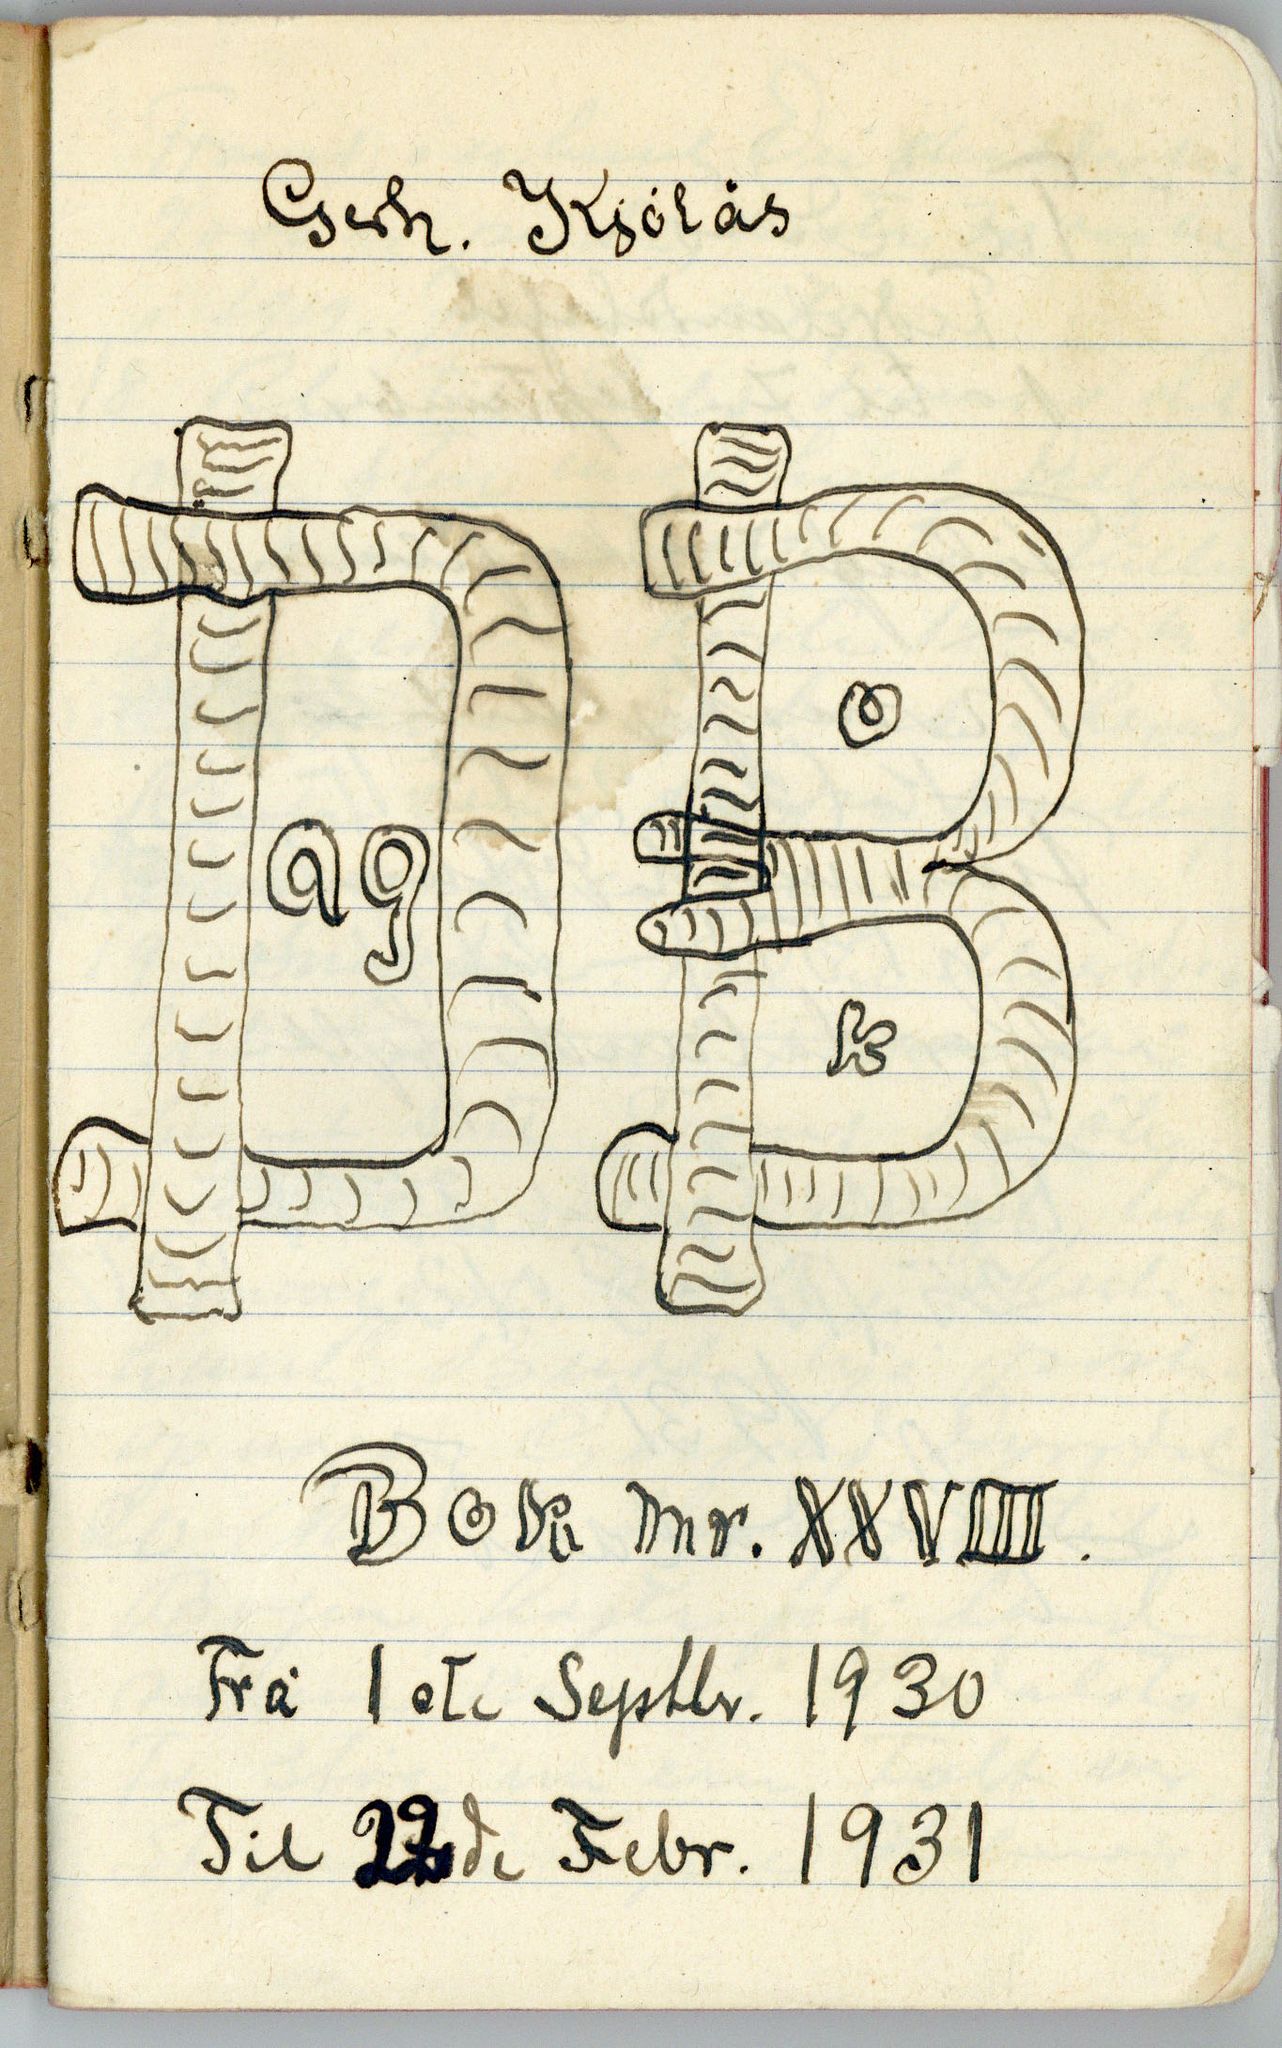 Gerh. Kjölås
Dag Bok
Bok nr. XXVIII.
Frå 1ste Septbr. 1930
Til 22de Febr. 1931